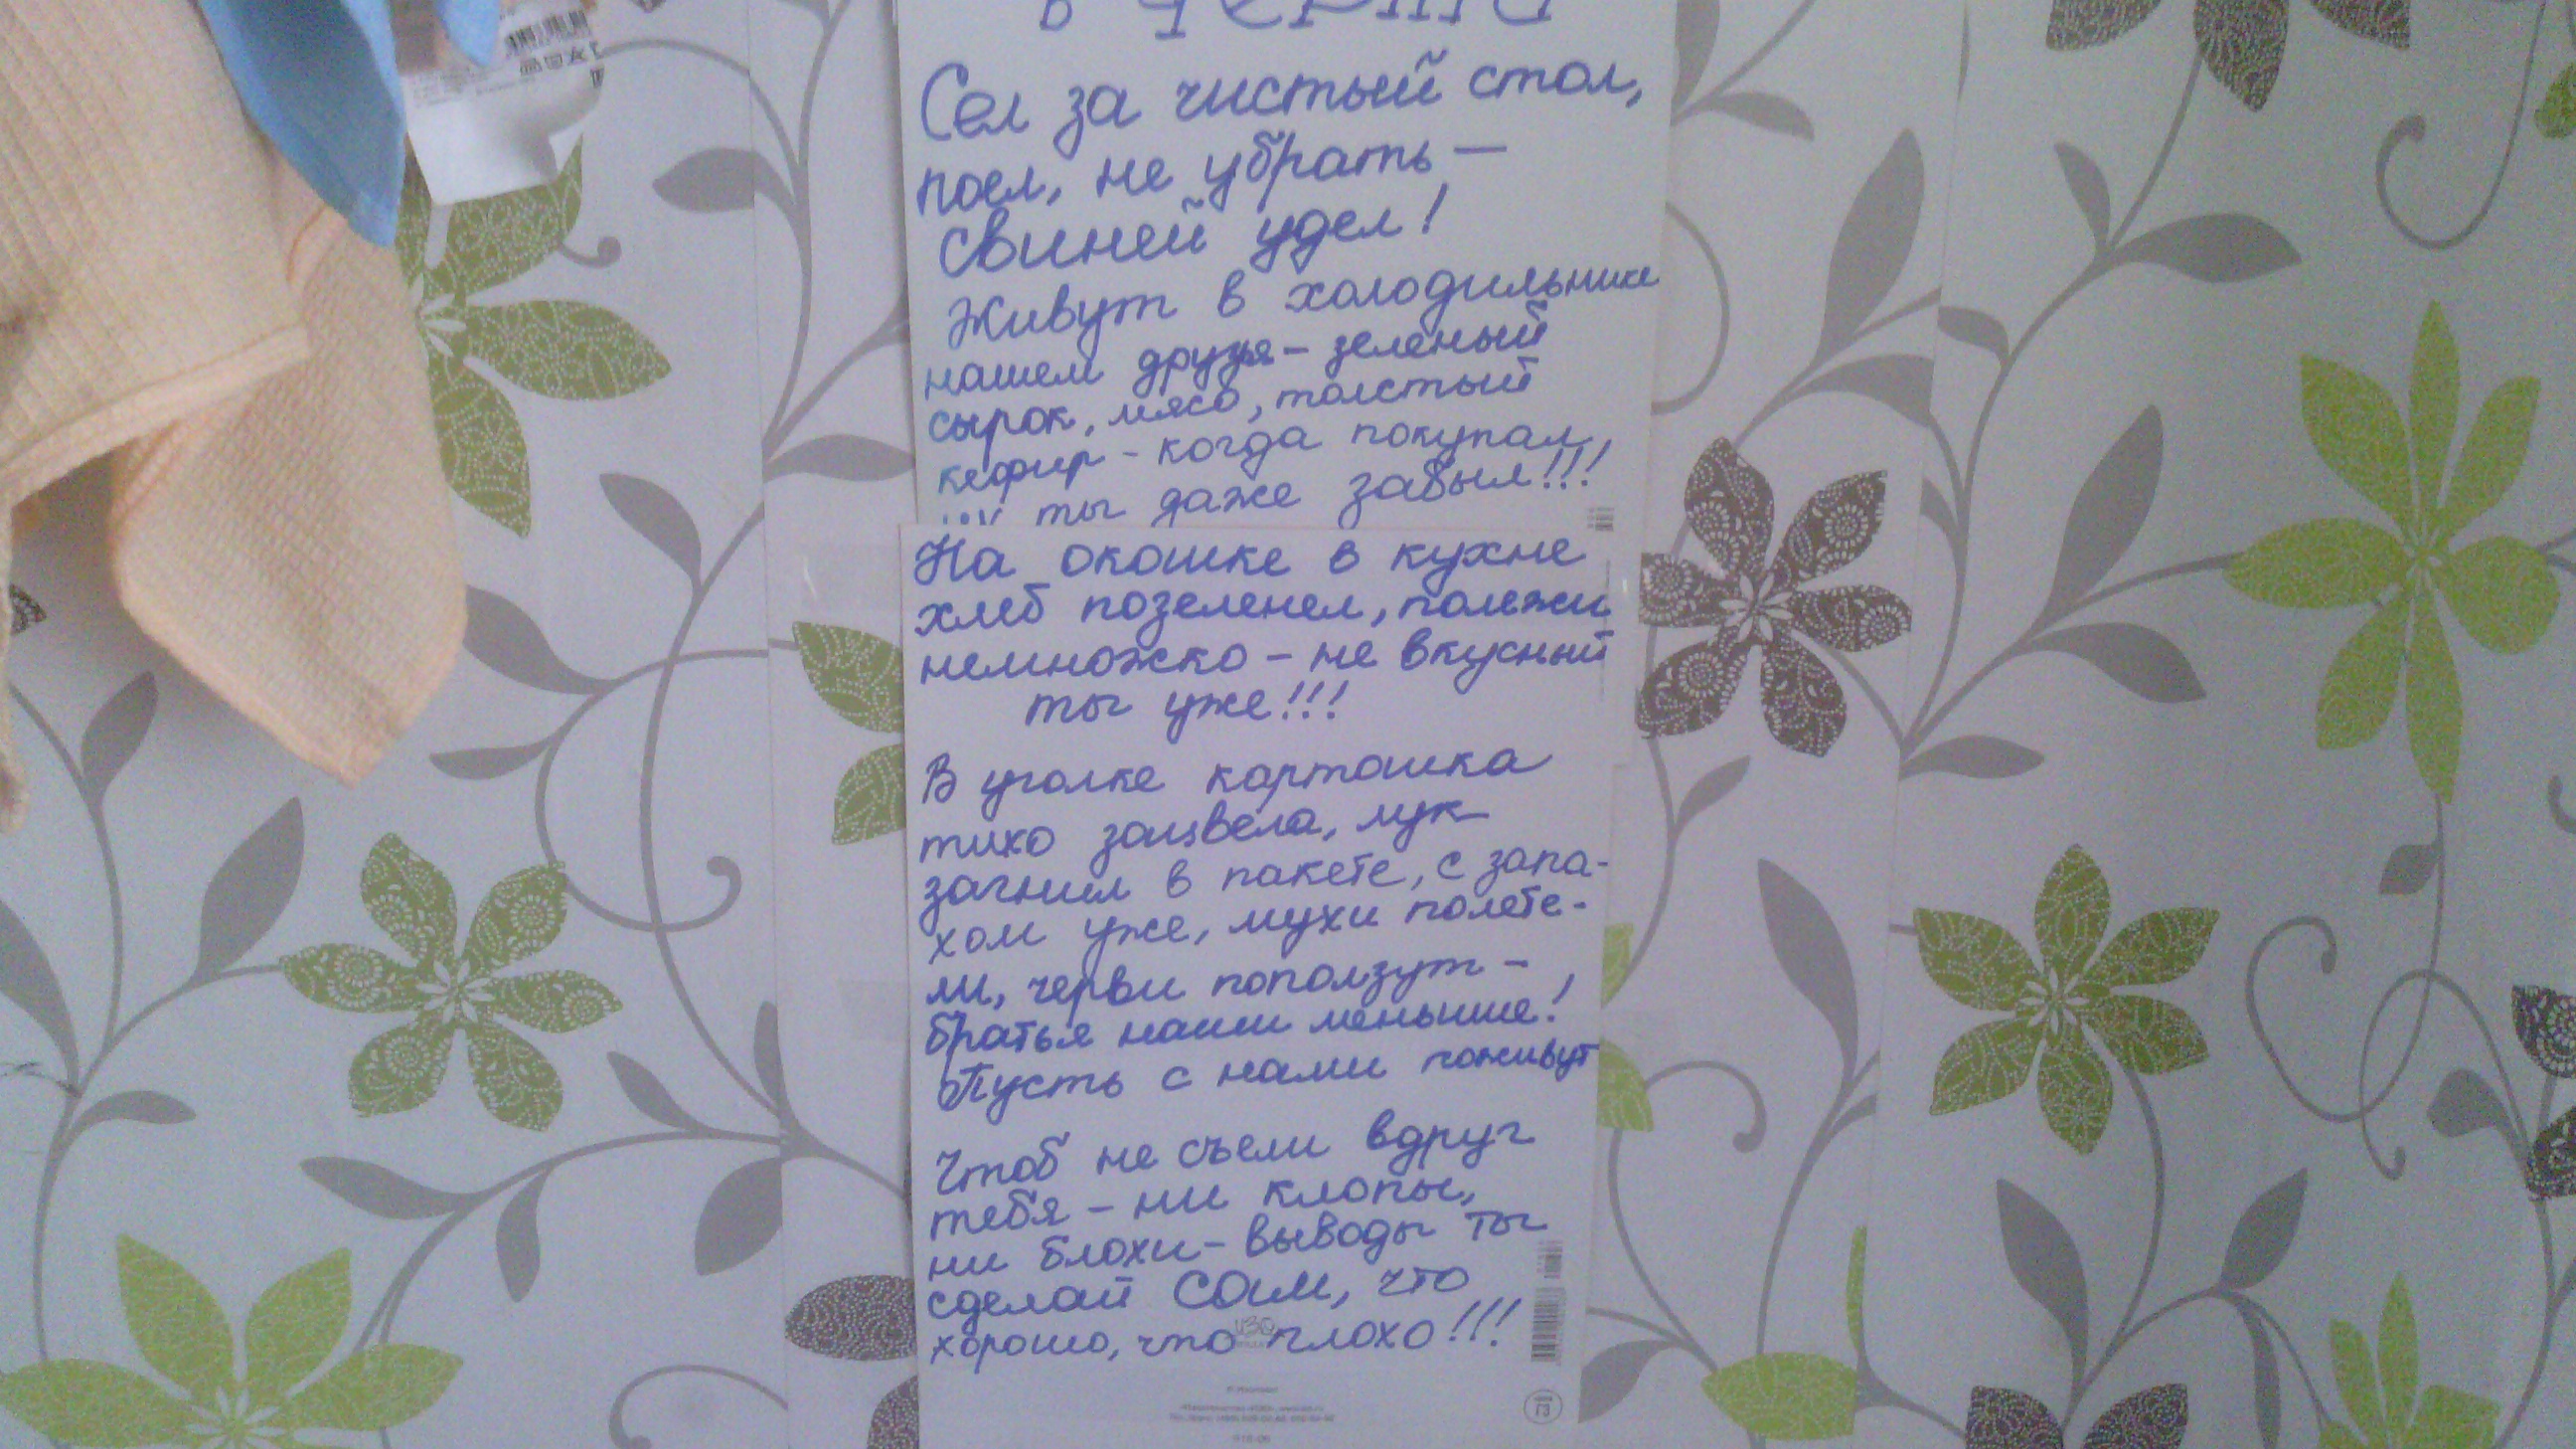 Сел за чистый стол,
поел, не убрать —
свиней удел!
Живут в холодильнике
нашем друзья – зеленый
сырок, мясо, толстый
кефир – когда покупал,
ты даже забыл!!!
На окошке в кухне
хлеб позеленел, полежи
немножко – не вкусный
ты уже!!!
В уголке картошка
тихо зацвела, лук
загнил в пакете, с запа-
хом уже, мухи полете-
ли, черви поползут –
братья наши меньшие!
Пусть с нами поживут
Чтоб не съели вдруг
тебя – ни клопы,
ни блохи – выводы ты
сделай сам, что
хорошо, что плохо!!!